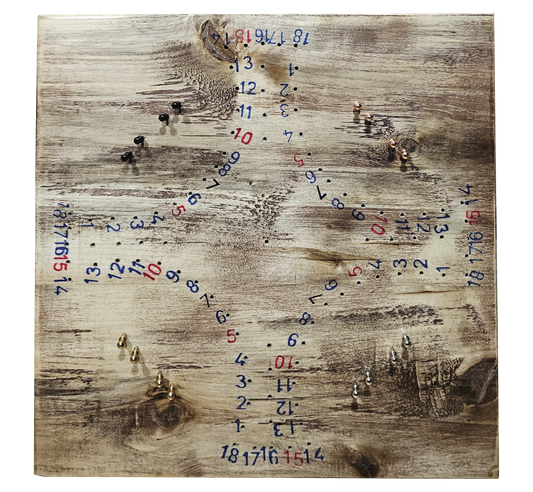 14 15 16 17 18
13 1
12 2
11 3
10 4
9 5
8 6
7 7
6 8
5 9
4 10
3 11
2 12
1 13
18 17 16 15 14
18 17 16 15 14
1 2 3 4 5 6 7 8 9
13 12 11 10 9 8 7 6 5
4 3 2 1
10 11 12 13
14 15 16 17 18